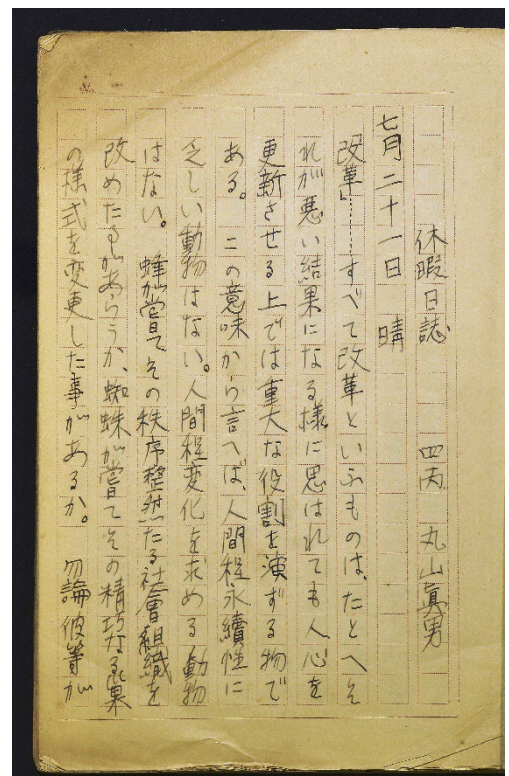 休暇日誌 四丙 丸山眞男
七月二十一日 晴
改革……すべて改革といふものは、たとへそ
れが悪い結果になる様に思はれても人心を
更新させる上では重大な役割を演ずる物で
ある。この意味から言へば、人間程永續性に
乏しい動物はない。人間程変化を求める動物
はない。蜂が嘗てその秩序整然たる社會組織を
改めたるがあらうか、蜘蛛が嘗てその精巧なる巣
の様式を変更した事があるか。勿論彼等が